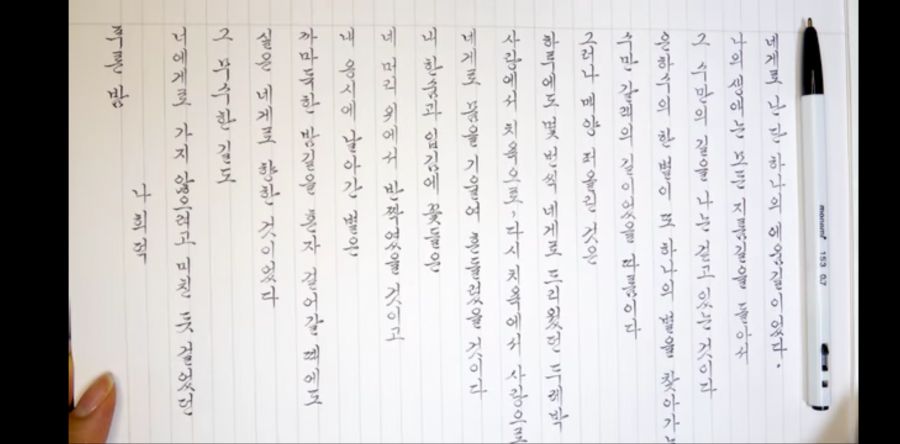 푸른 밤
나희덕
너에게로 가지 않으려고 미친 듯 걸었던
그 무수한 길도
실은 네게로 향한 것이었다
까마득한 밤길을 혼자 걸어갈 때에도
내 응시에 날아간 별은
네 머리 위에서 반짝였을 것이고
내 한숨과 입김에 꽃들은
네게로 몸을 기울여 흔들렸을 것이다
사랑에서 치욕으로, 다시 치욕에서 사랑으로
하루에도 몇 번씩 네게로 드리웠던 두레박
그러나 매양 퍼올린 것은
수만 갈래의 길이었을 따름이다
은하수의 한 별이 또 하나의 별을 찾아가는
그 수만의 길을 나는 걷고 있는 것이다
나의 생애는 모든 지름길을 돌아서
네게로 난 단 하나의 에움길이었다.
monami 153 0.7